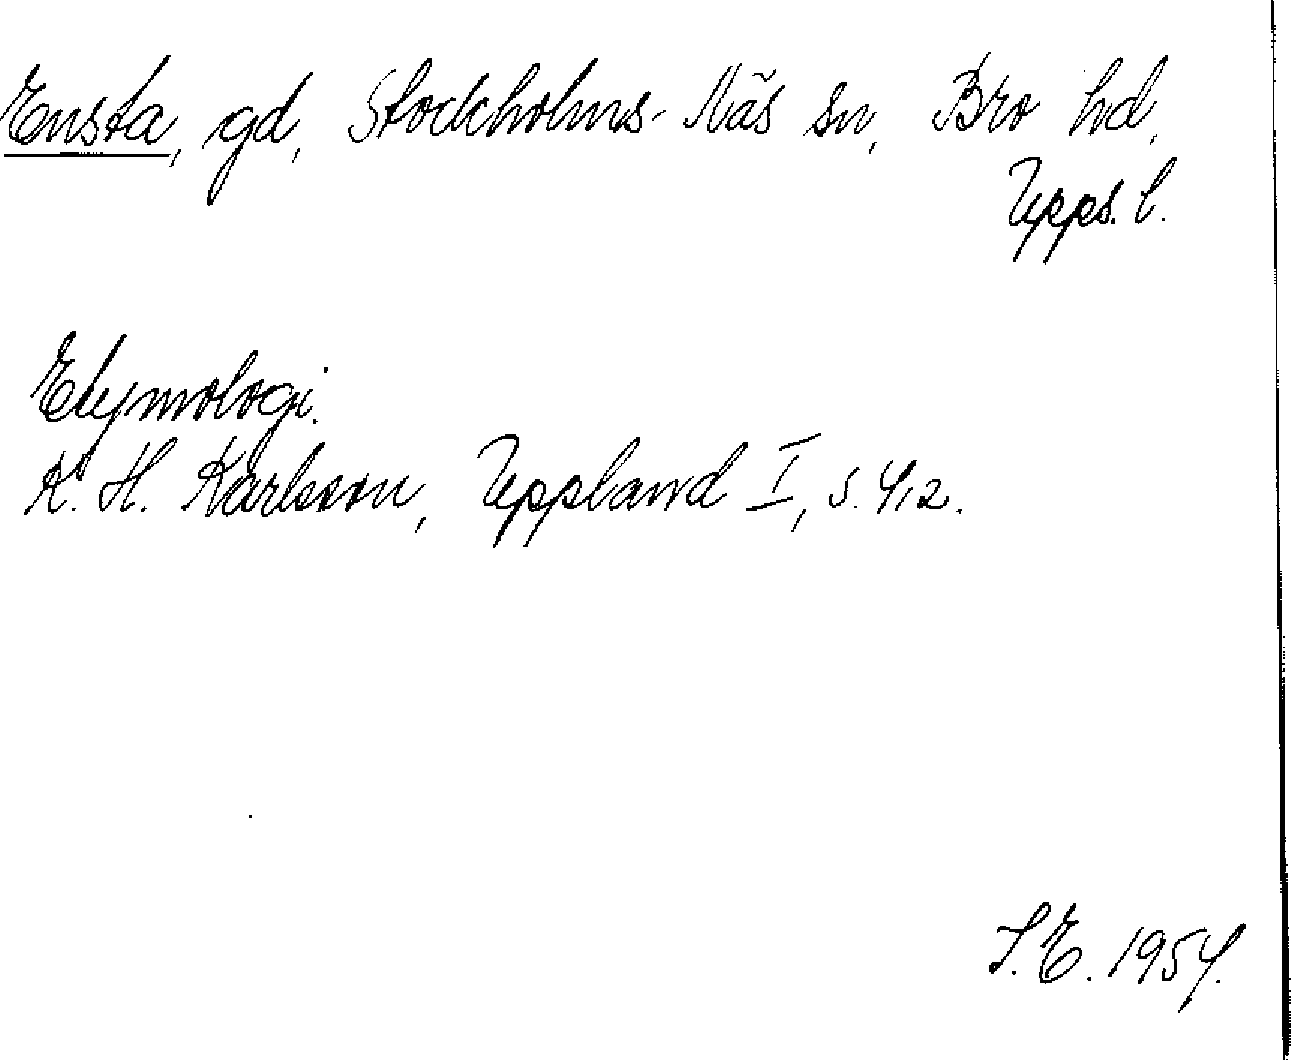 Ensta, gd, Stockholms-Näs sn, Bro hd,
Upps. l.
Etymologi.
K. H. Karlsson, Uppland I, s. 412.
S. E. 1954.